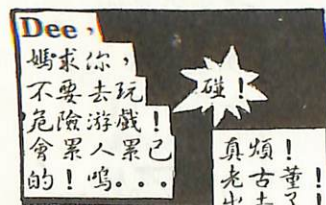 Dee，
媽求你，
不要去玩
危險游戲！
會累人累己
的！嗚...
碰！
真煩！
老古董！